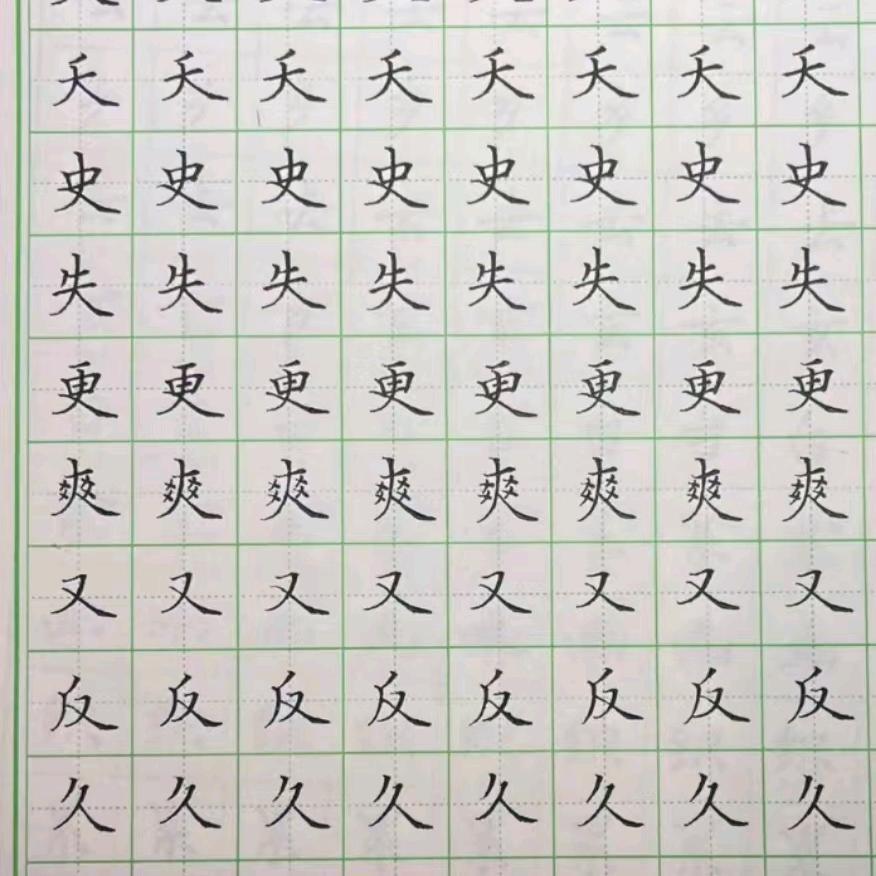 夭 夭 夭 夭 夭 夭 夭 夭
史 史 史 史 史 史 史 史
失 失 失 失 失 失 失 失
更 更 更 更 更 更 更 更
爽 爽 爽 爽 爽 爽 爽 爽
又 又 又 又 又 又 又 又
反 反 反 反 反 反 反 反
久 久 久 久 久 久 久 久